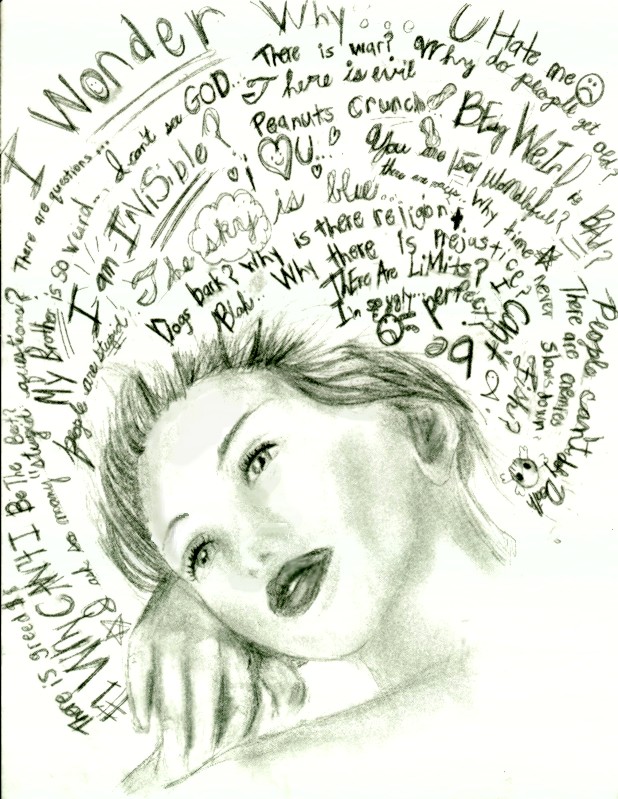 I Wonder Why...
U Hate me
There is war? Why do people get old?
There is evil
I can't see GOD...
Peanuts Crunch
BEing WeiRd is BAD?
There are questions...
I am INViSible?
I ♡ U...
You are too Wonderful?
My Brother is so weird...
The sky is blue...
Why time never slows down
Dogs bark? Why is there religion
Why there Is Prejustice?
People are stupid
Blah...
ThEre Are LiMits?
I'm so ugly... perfect?
I can't
Fish?
There are enemies
People can't
Death
There is greed $
#1 WhY CAN't I Be The Best?
ask so many "stupid" questions?